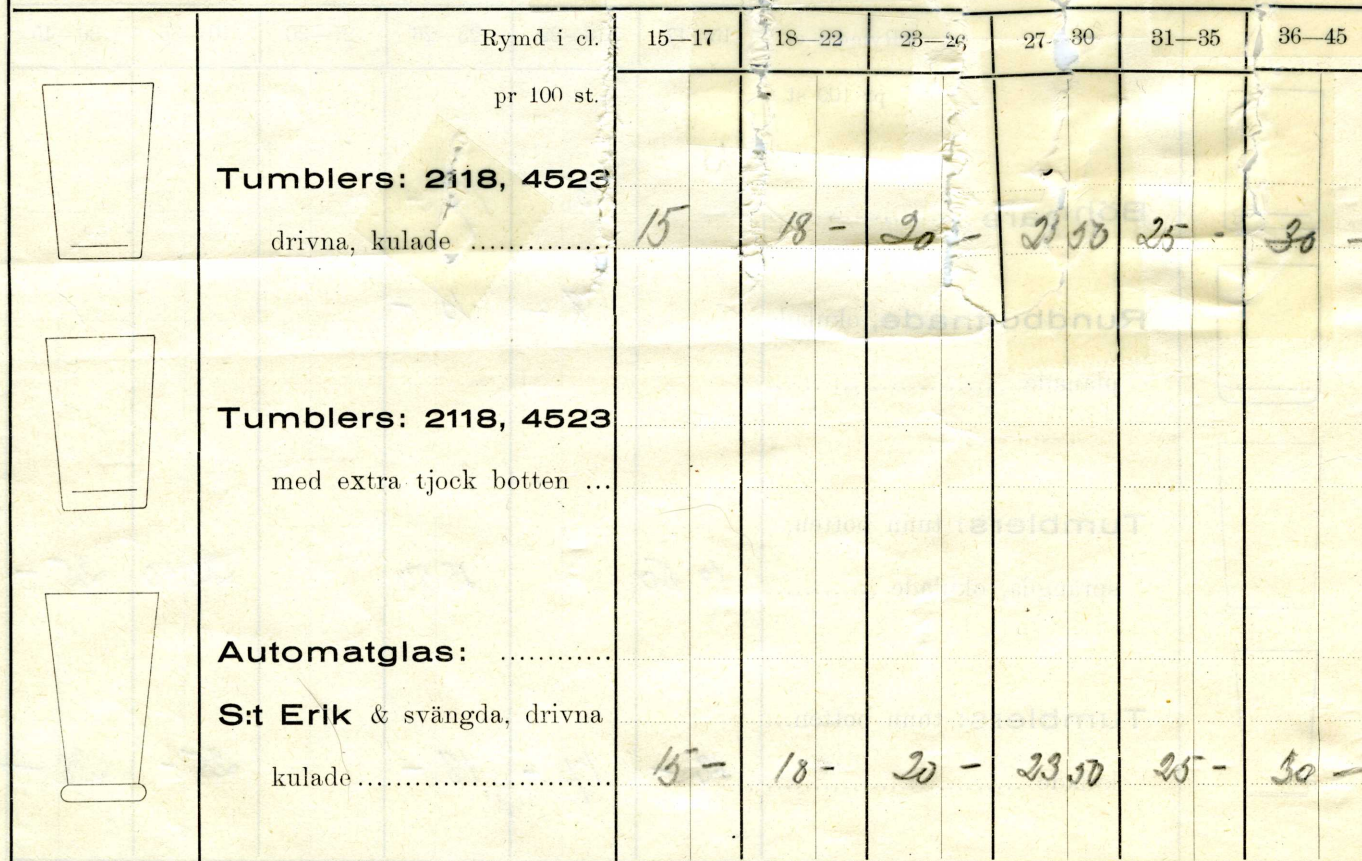 Rymd i cl. 15—17 18—22 23—26 27—30 31—35 36—45
pr 100 st.
Tumblers: 2118, 4523
drivna, kulade .............. 15 18 - 20 - 23 50 25 - 30 -
Tumblers: 2118, 4523
med extra tjock botten ...
Automatglas: ...........
S:t Erik & svängda, drivna
kulade ......................... 15 - 18 - 20 - 23 50 25 - 30 -